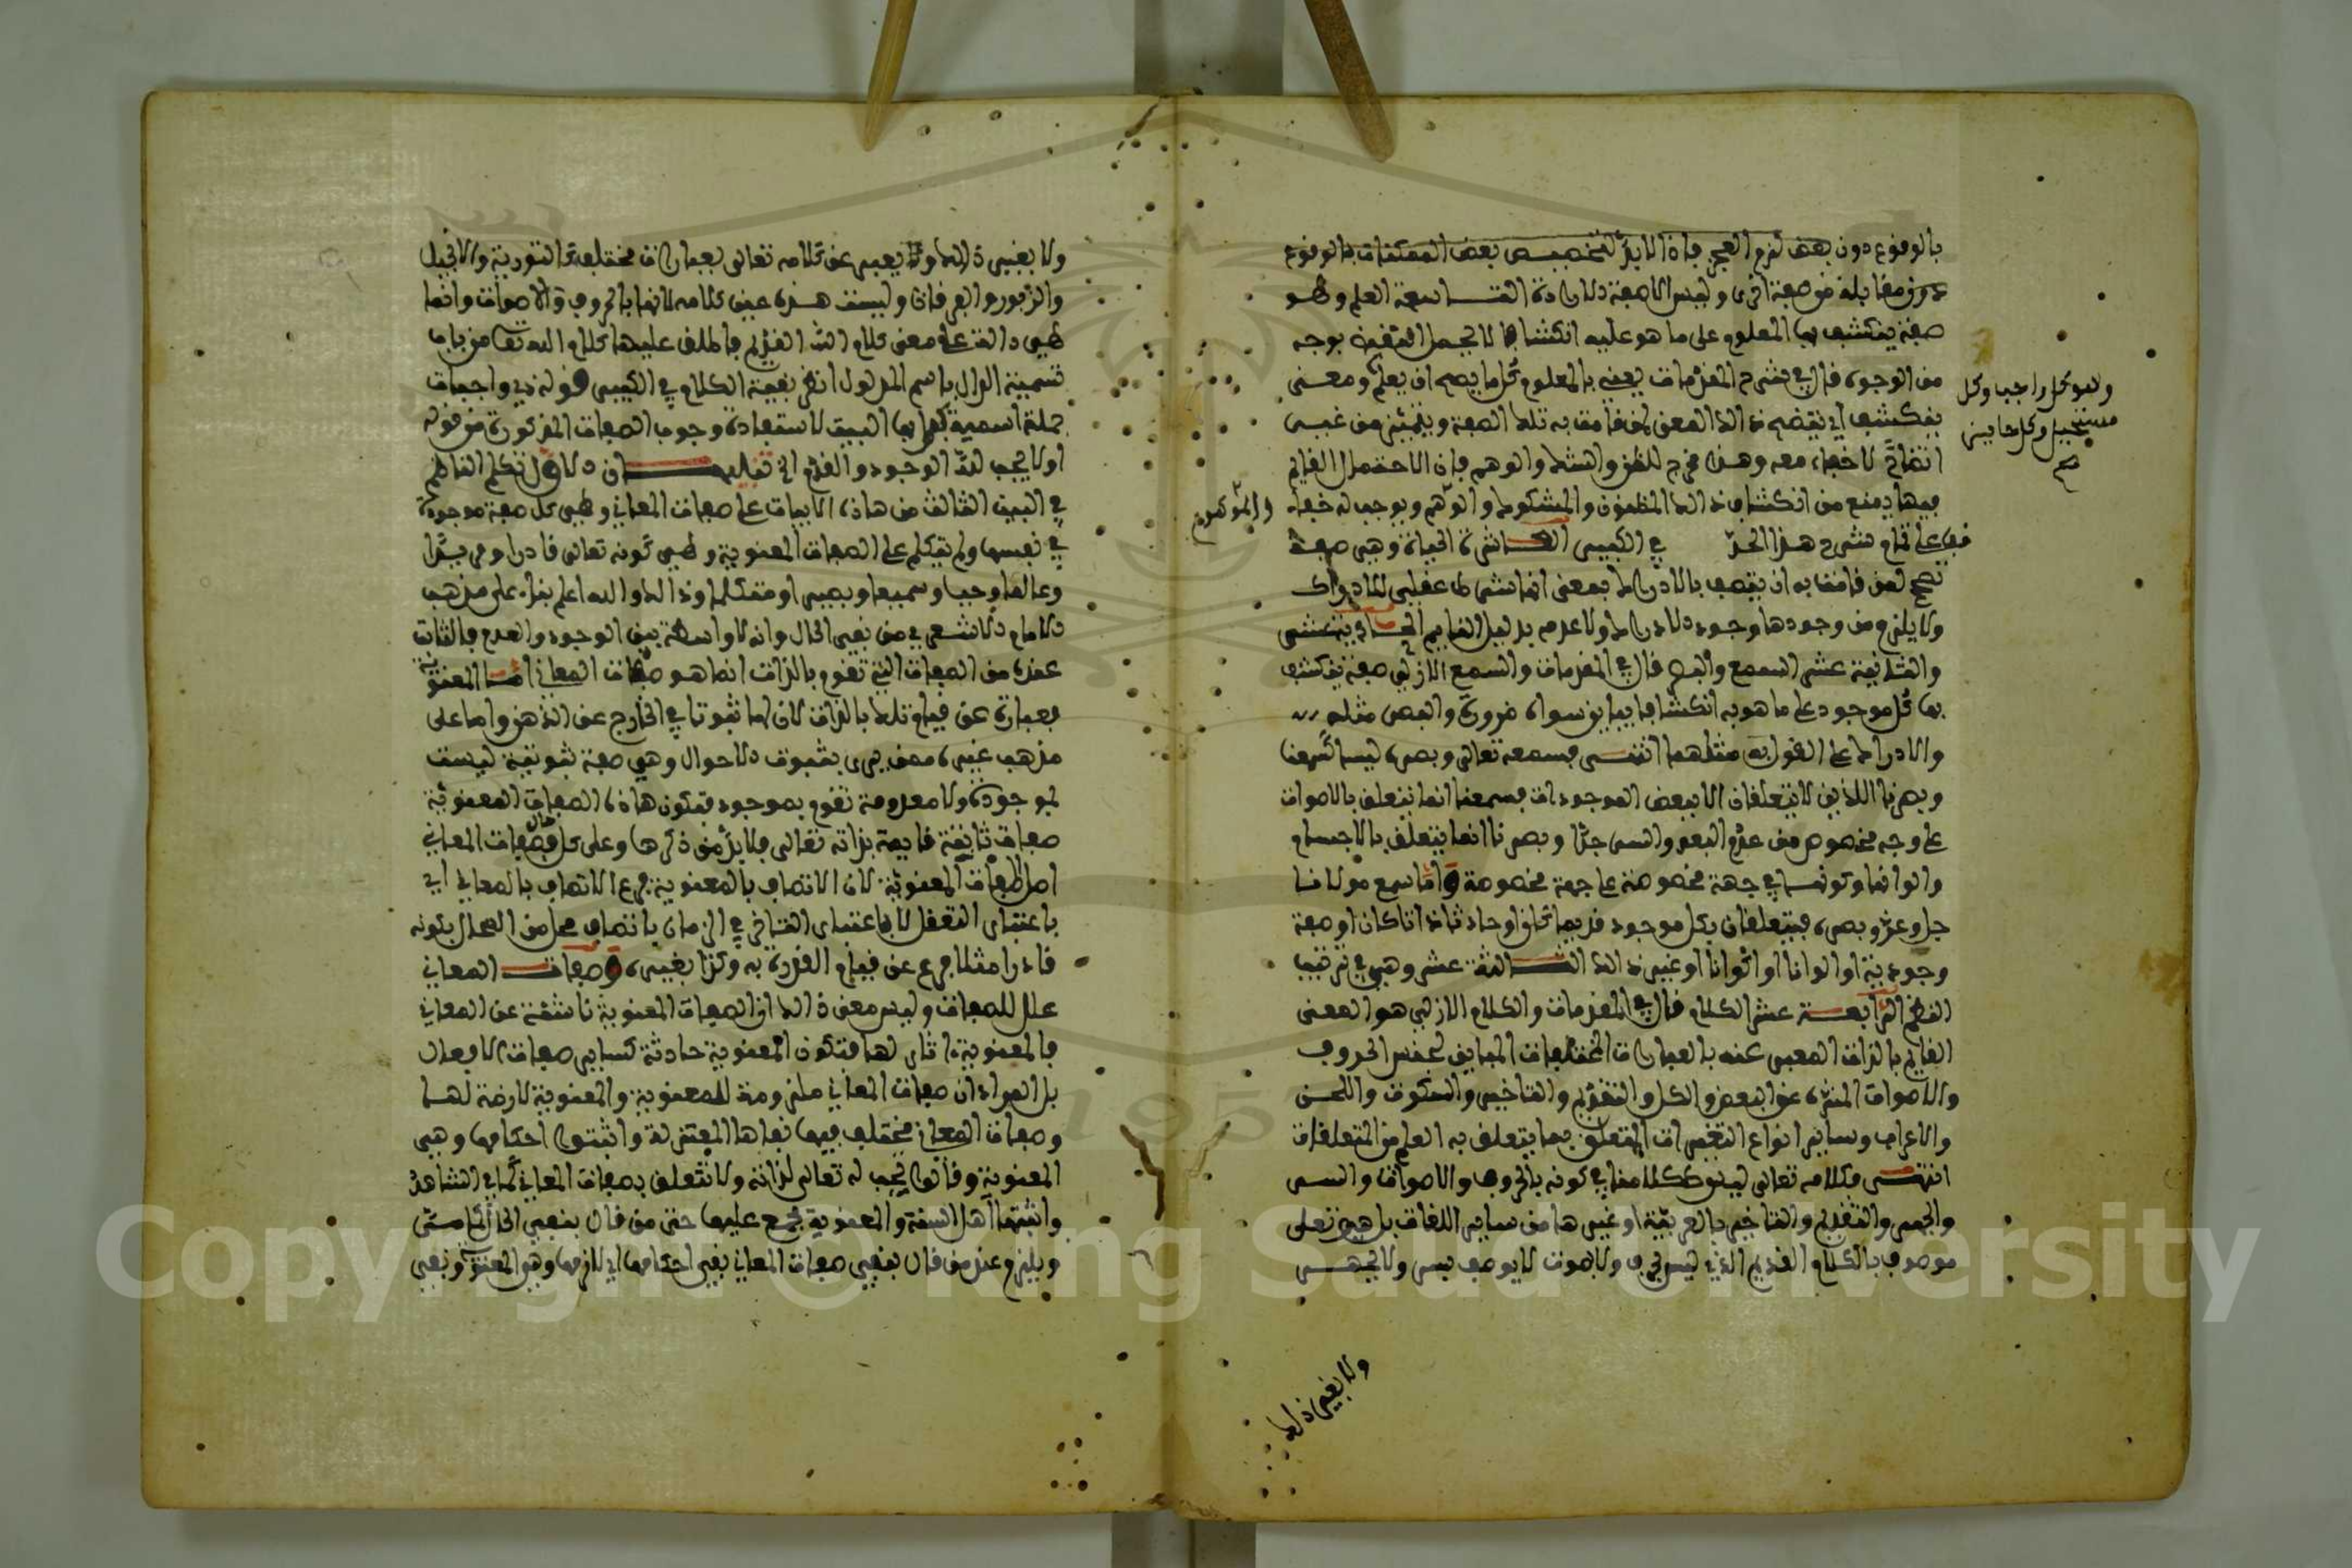 بالوقوع دون بعض لزم العجز فإذا لا بد لتخصيص بعض الممكنات بالوقوع
دون مقابله من صفة أخرى وليس إلا صفة الإرادة التاسعة العلم وهو
صفة ينكشف بها المعلوم على ما هو عليه انكشافا لا يحتمل النقيض بوجه
من الوجوه قال في شرح المقدمات يعني بالمعلوم كل ما يصح أن يعلم ومعنى
وهو كل واجب وكل
مستحيل وكل جايز
صح
ينكشف أي يتضح ذلك المعنى لمن قامت به تلك الصفة ويتميز من غيره
اتضاحا لا خفاء معه وهذا مخرج للظن والشك والوهم فإن الاحتمال القايم
فيها يمنع من انكشاف ذلك المظنون والمشكوك والوهم ويوجب له خفاء
والموهوم
في الكبيرى العاشرة الحياة وهي صفة
تصحح لمن قامت به أن يتصف بالإدراك بمعنى أنها شرط عقلي للإدراك
ولا يلزم من وجودها وجود الإدراك ولا عدمه بدليل النايم الحادية عشر
والثانية عشر السمع والبصر قال في المقدمات والسمع الأزلي صفة ينكشف
بها كل موجود على ما هو به انكشافا يباين سواه ضرورة والبصر مثله
والإدراك على القول به مثلهما انتهى فسمعه تعالى وبصره ليسا كسمعنا
وبصرنا اللذين لا يتعلقان إلا ببعض الموجودات فسمعنا إنما يتعلق بالأصوات
على وجه مخصوص من عدم البعد والسر جدا وبصرنا إنما يتعلق بالأجسام
وألوانها وكونها في جهة مخصوصة على جهة مخصوصة وأما سمع مولانا
جل وعز وبصره فيتعلقان بكل موجود قديما كان أو حادثا ذاتا كان أو صفة
وجودية أو ألوانا أو أكوانا أو غير ذلك الثالثة عشر وهي في ترتيب
النظم الرابعة عشر الكلام قال في المقدمات والكلام الأزلي هو المعنى
القايم بالذات المعبر عنه بالعبارات المختلفات المباين لجنس الحروف
والأصوات المنزه عن البعض والكل والتقديم والتأخير والسكوت واللحن
والإعراب وساير أنواع التغيرات المتعلق بما يتعلق به العلم من المتعلقات
انتهى فكلامه تعالى ليس ككلامنا في كونه بالحروف والأصوات والسر
والجهر والتقديم والتأخير بالعربية أو غيرها من ساير اللغات بل هو تعالى
موصوف بالكلام القديم الذي ليس بحرف ولا بصوت لا يوصف بسر ولا بجهر
ولا بغير ذلك
ولا بغير ذلك وإنما يعبر عن كلامه تعالى بعبارات مختلفة كالتورية والإنجيل
والزبور والفرقان وليست هذه عين كلامه لأنها بالحروف والأصوات وإنما
هي دالة على معنى كلام الله القديم فأطلق عليها كلام الله تعالى من باب
تسمية الدال باسم المدلول انظر بقية الكلام في الكبير قوله في واجبات
جملة اسمية كمل بها البيت لاستفادة وجوب الصفات المذكورة من قوله
أولا يجب لله الوجود والقدم الخ تنبيهان الأول تكلم الناظم
في البيت الثالث من هذه الأبيات على صفات المعاني وهي كل صفة موجودة
في نفسها ولم يتكلم على الصفات المعنوية وهي كونه تعالى قادرا ومريدا
وعالما وحيا وسميعا وبصيرا ومتكلما وذلك والله أعلم بناء على مذهب
الإمام الأشعري من نفي الحال وأنه لا واسطة بين الوجود والعدم فالثابت
عنده من الصفات التي تقوم بالذات إنما هو صفات المعاني أما المعنوية
فعبارة عن قيام تلك بالذات لا أن لها ثبوتا في الخارج عن الذهن وأما على
مذهب غيره ممن يرى بثبوت الأحوال وهي صفة ثبوتية ليست
بموجودة ولا معدومة تقوم بموجود فتكون هذه الصفات المعنوية
صفات ثابتة قايمة بذاته تعالى فلا بد من ذكرها وعلى كل حال فصفات المعاني
أصل للصفات المعنوية لأن الاتصاف بالمعنوية فرع الاتصاف بالمعاني أي
باعتبار التعقل لا باعتبار التأخر في الزمان فاتصاف محل من المحال بكونه
قادرا مثلا فرع عن قيام القدرة به وكذا بغيره وصفات المعاني
علل للصفات وليس معنى ذلك أن الصفات المعنوية ناشئة عن المعاني
فالمعنوية آثار لها فتكون المعنوية حادثة كساير صفات الأفعال
بل المراد أن صفات المعاني ملزومة للمعنوية والمعنوية لازمة لها
وصفات المعاني مختلف فيها نفاها المعتزلة وأثبتوا أحكامها وهي
المعنوية وقالوا يجب له تعالى لذاته ولا تتعلق بصفات المعاني كما في الشاهد
وأثبتها أهل السنة والمعنوية مجمع عليها حتى من قال بنفي الحال
ويلزم عند من قال بنفي صفات المعاني نفي أحكامها أي لازمها وهو المعنوية ونفي